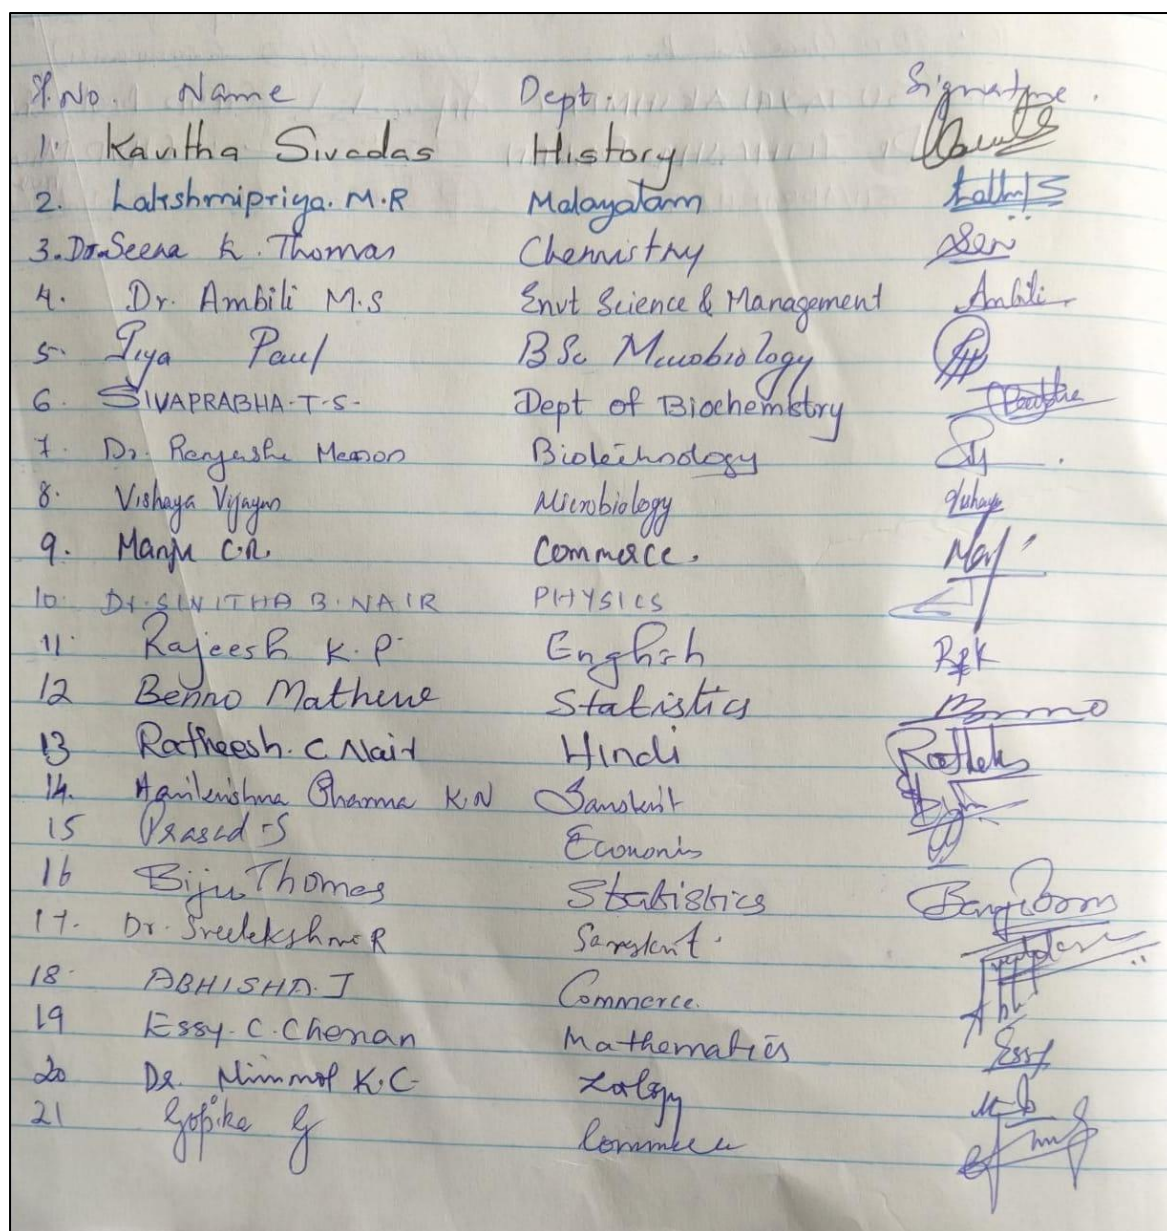 Sl.No. Name Dept. Signature.
1. Kavitha Sivadas History
2. Lakshmipriya. M.R Malayalam
3. Dr. Seena K. Thomas Chemistry
4. Dr. Ambili M.S Envt Science & Management Ambili
5. Jiya Paul BSc Microbiology
6. SIVAPRABHA.T.S. Dept of Biochemistry
7. Dr. Renjusha Menon Biotechnology
8. Vishaya Vijayan Microbiology
9. Manju C.R. Commerce.
10. Dr. SINITHA B. NAIR PHYSICS
11. Rajeesh K.P English RPK
12 Benno Mathew Statistics Benno
13 Ratheesh. C Nair Hindi
14. Harikrishna Sharma K.N Sanskrit
15 Prasad S Economis
16 Biju Thomas Statistics
17. Dr. Sreelekshmi R Sanskrit.
18. ABHISHA. J Commerce.
19 Essy. C. Cherian Mathematics Essy
20 Dr. Nimmol K.C Zology
21 Gopika G Commerce